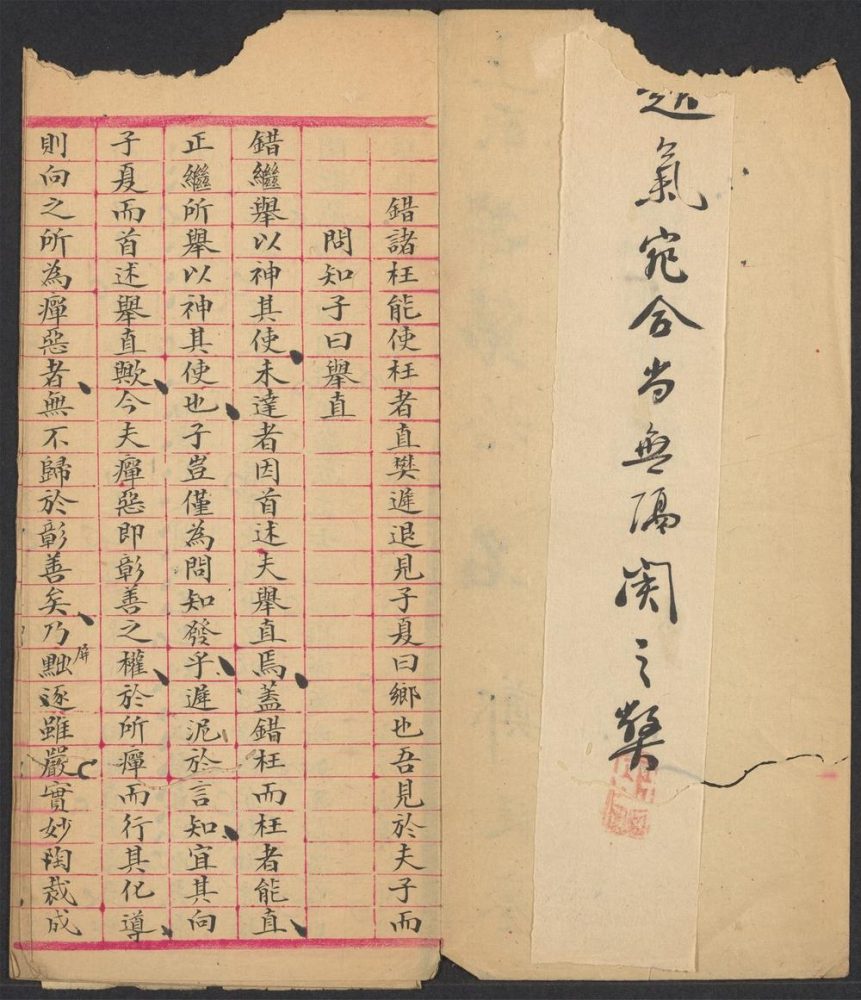 氣宛合尚無隔閡之弊
錯諸枉能使枉者直樊遲退見子夏曰鄉也吾見於夫子而
問知子曰舉直
錯繼舉以神其使未達者因首述夫舉直焉蓋錯枉而枉者能直
正繼所舉以神其使也子豈僅為問知發乎遲泥於言知宜其向
子夏而首述舉直歟今夫癉惡即彰善之權於所癉而行其化導
則向之所為癉惡者無不歸於彰善矣乃黜逐雖嚴實妙陶裁成
屏